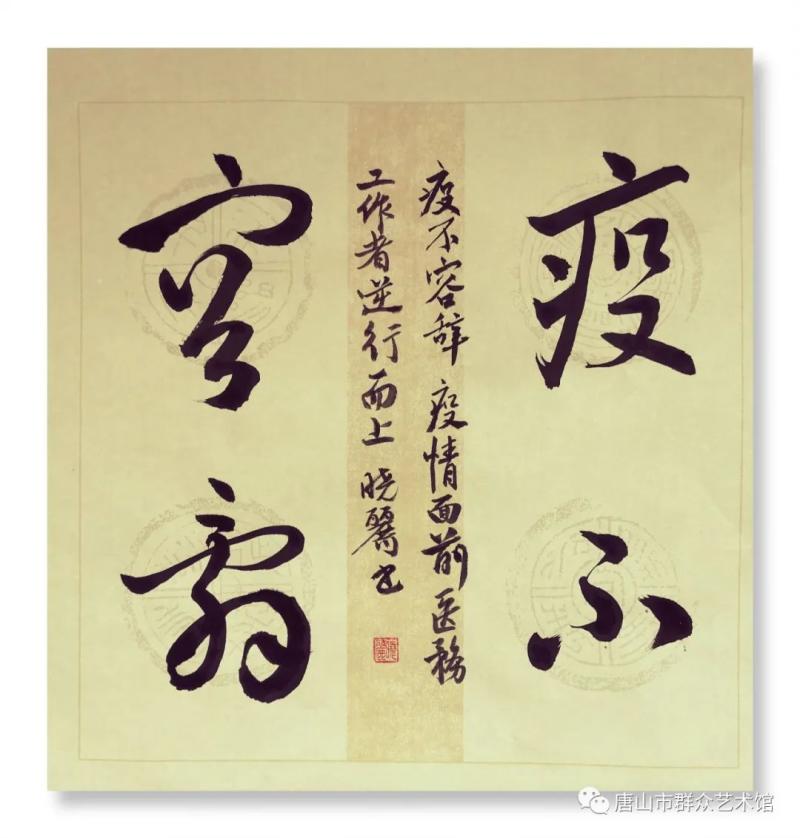 疫不
容辞
疫不容辞 疫情面前医務
工作者逆行而上 晓麗书
唐山市群众艺术馆